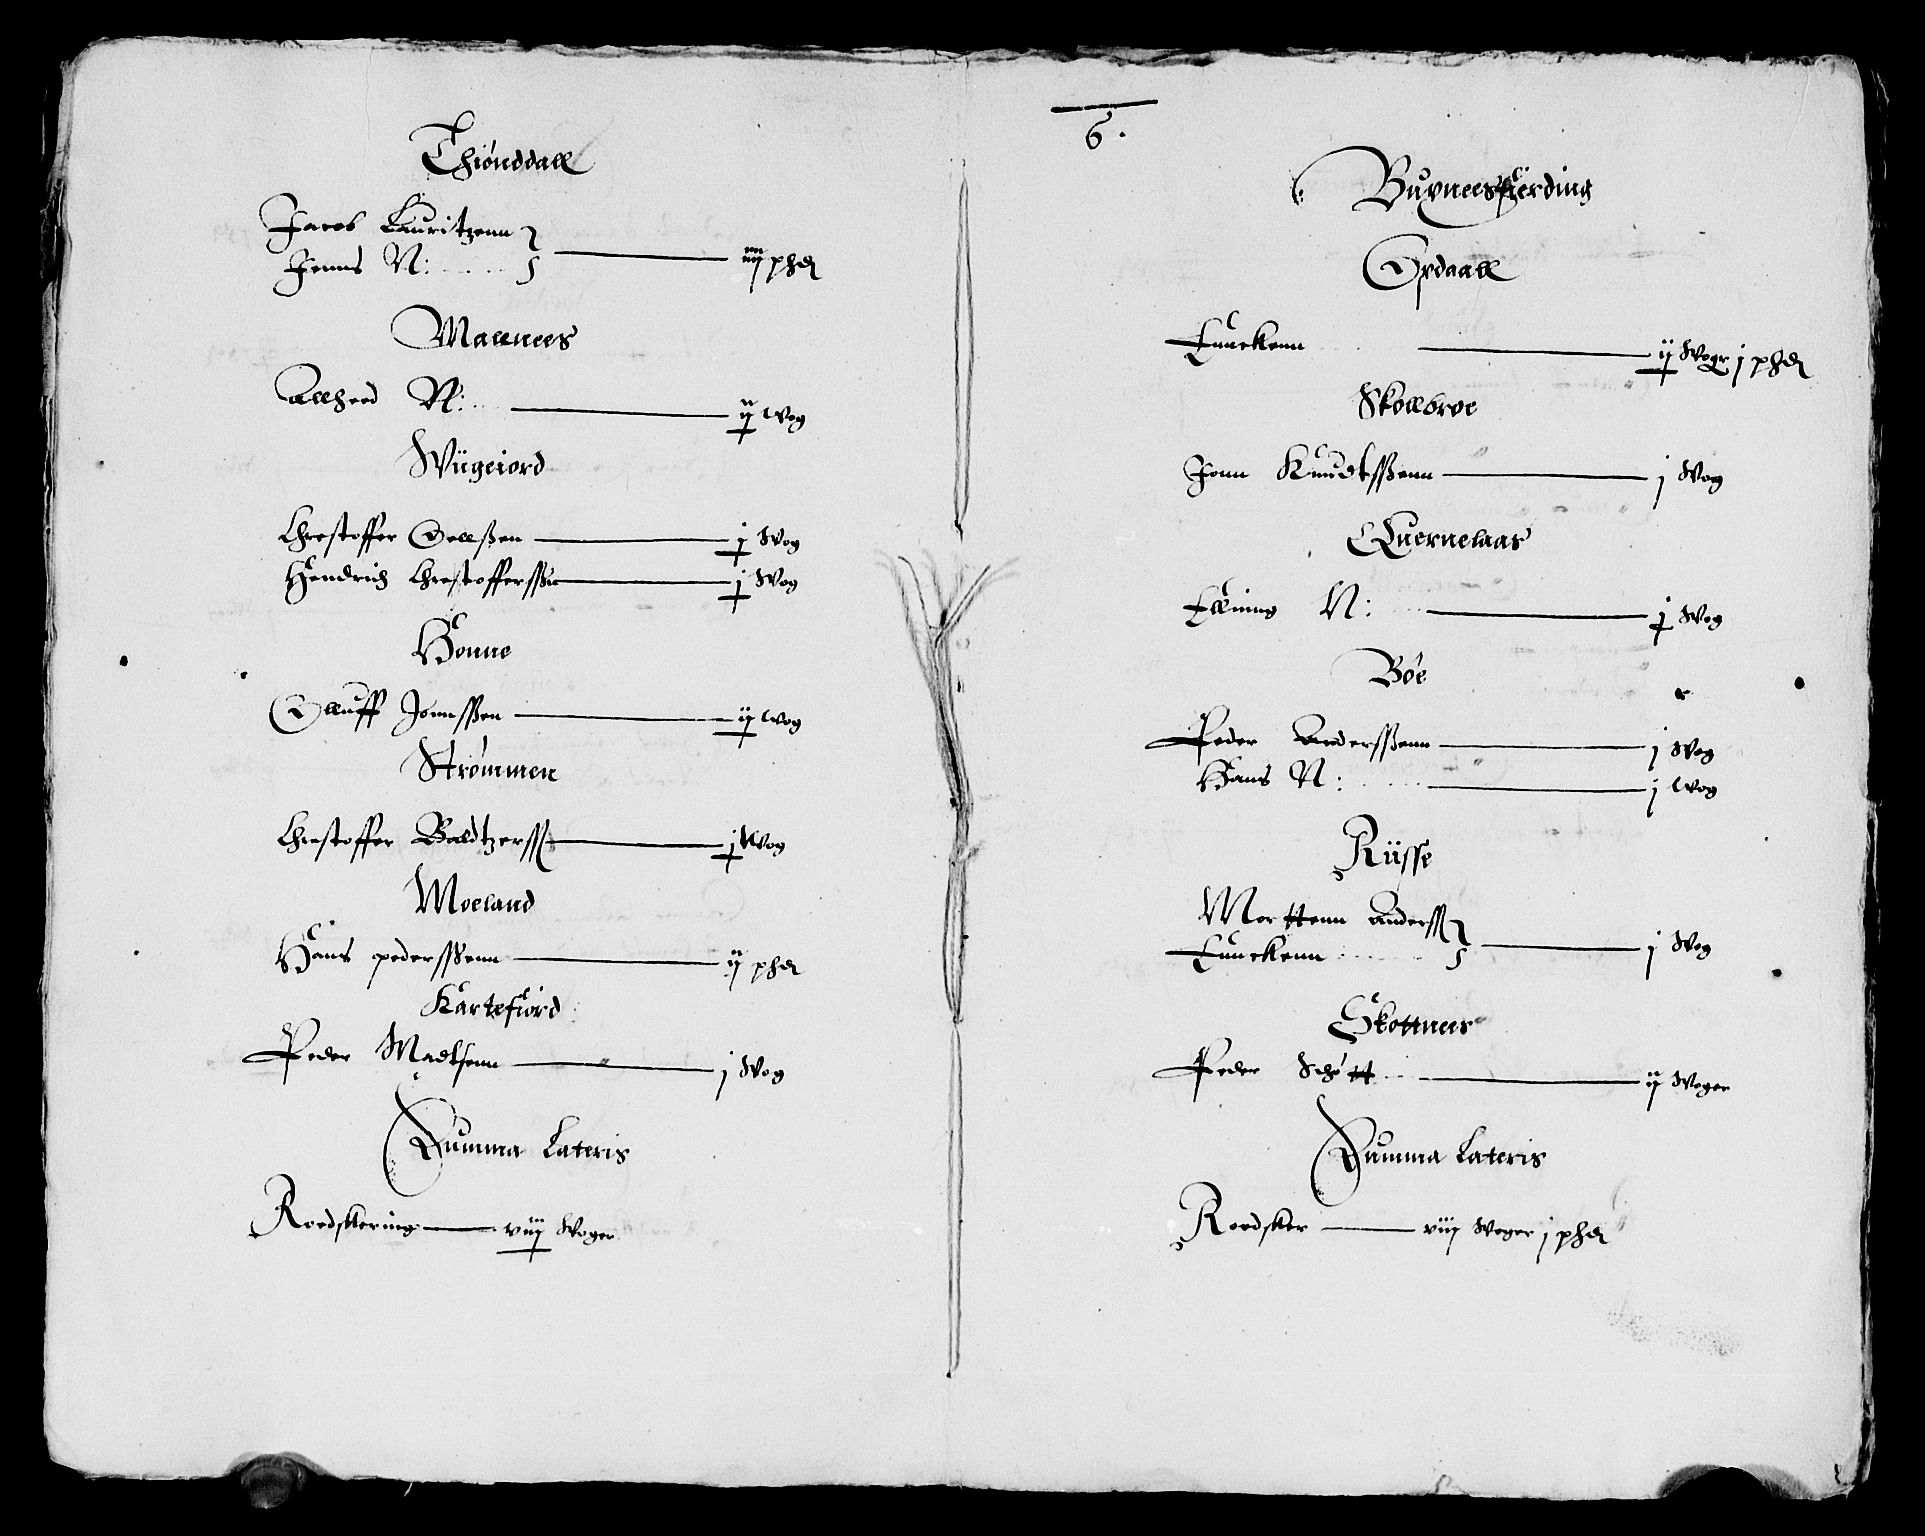 Thiønddall
Jacob Lauritzenn
Jenns N: iiij phd
Mallnees
Allherd N: ij Wog
Wiigeiord
Chrestoffer Oellßen j Wog
Hendrich Chrestofferssßn j Wog
Honne
Olluff Jonnsßen ij Wog
Strømmen
Chrestoffer Balldtzerss j Wog
Moeland
Hans pedersßenn ij phd
Kartefiord
Peder Madtsenn j Wog
Summa Lateris
Roedskering viij Woger
6.
Buxneesfierding
Opdaall
Ennckenn ij Wogr j phd
Skollbroe
Jonn Knudtsßenn j Wog
Quernelaas
Elling N: j Wog
Bøe
Peder Andersßenn j Wog
Hans N: j Wog
Riisse
Morttenn Anderss
Ennckenn j Wog
Skottnees
Peder Schøtt ij Woger
Summa Lateris
Roedsker viij Woger j phd